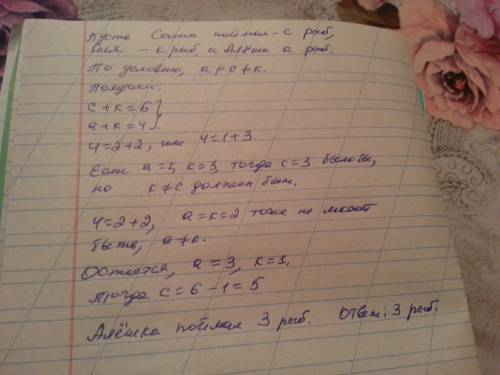 Пусть Сашка поймал - с рыб,
Коля - к рыб, а Алёша а рыб.
По условию, а ≠ с ≠ к.
Получим:
с + к = 6 }
а + к = 4 }.
4 = 2 + 2, или 4 = 1 + 3.
Если а = 1, к = 3, тогда с = 3 было бы,
но к ≠ с должен быть.
4 = 2 + 2, а = к = 2 тоже не может
быть, а ≠ к.
Остаётся, а = 3, к = 1,
тогда с = 6 - 1 = 5
Алёшка поймал 3 рыб. Ответ: 3 рыб.